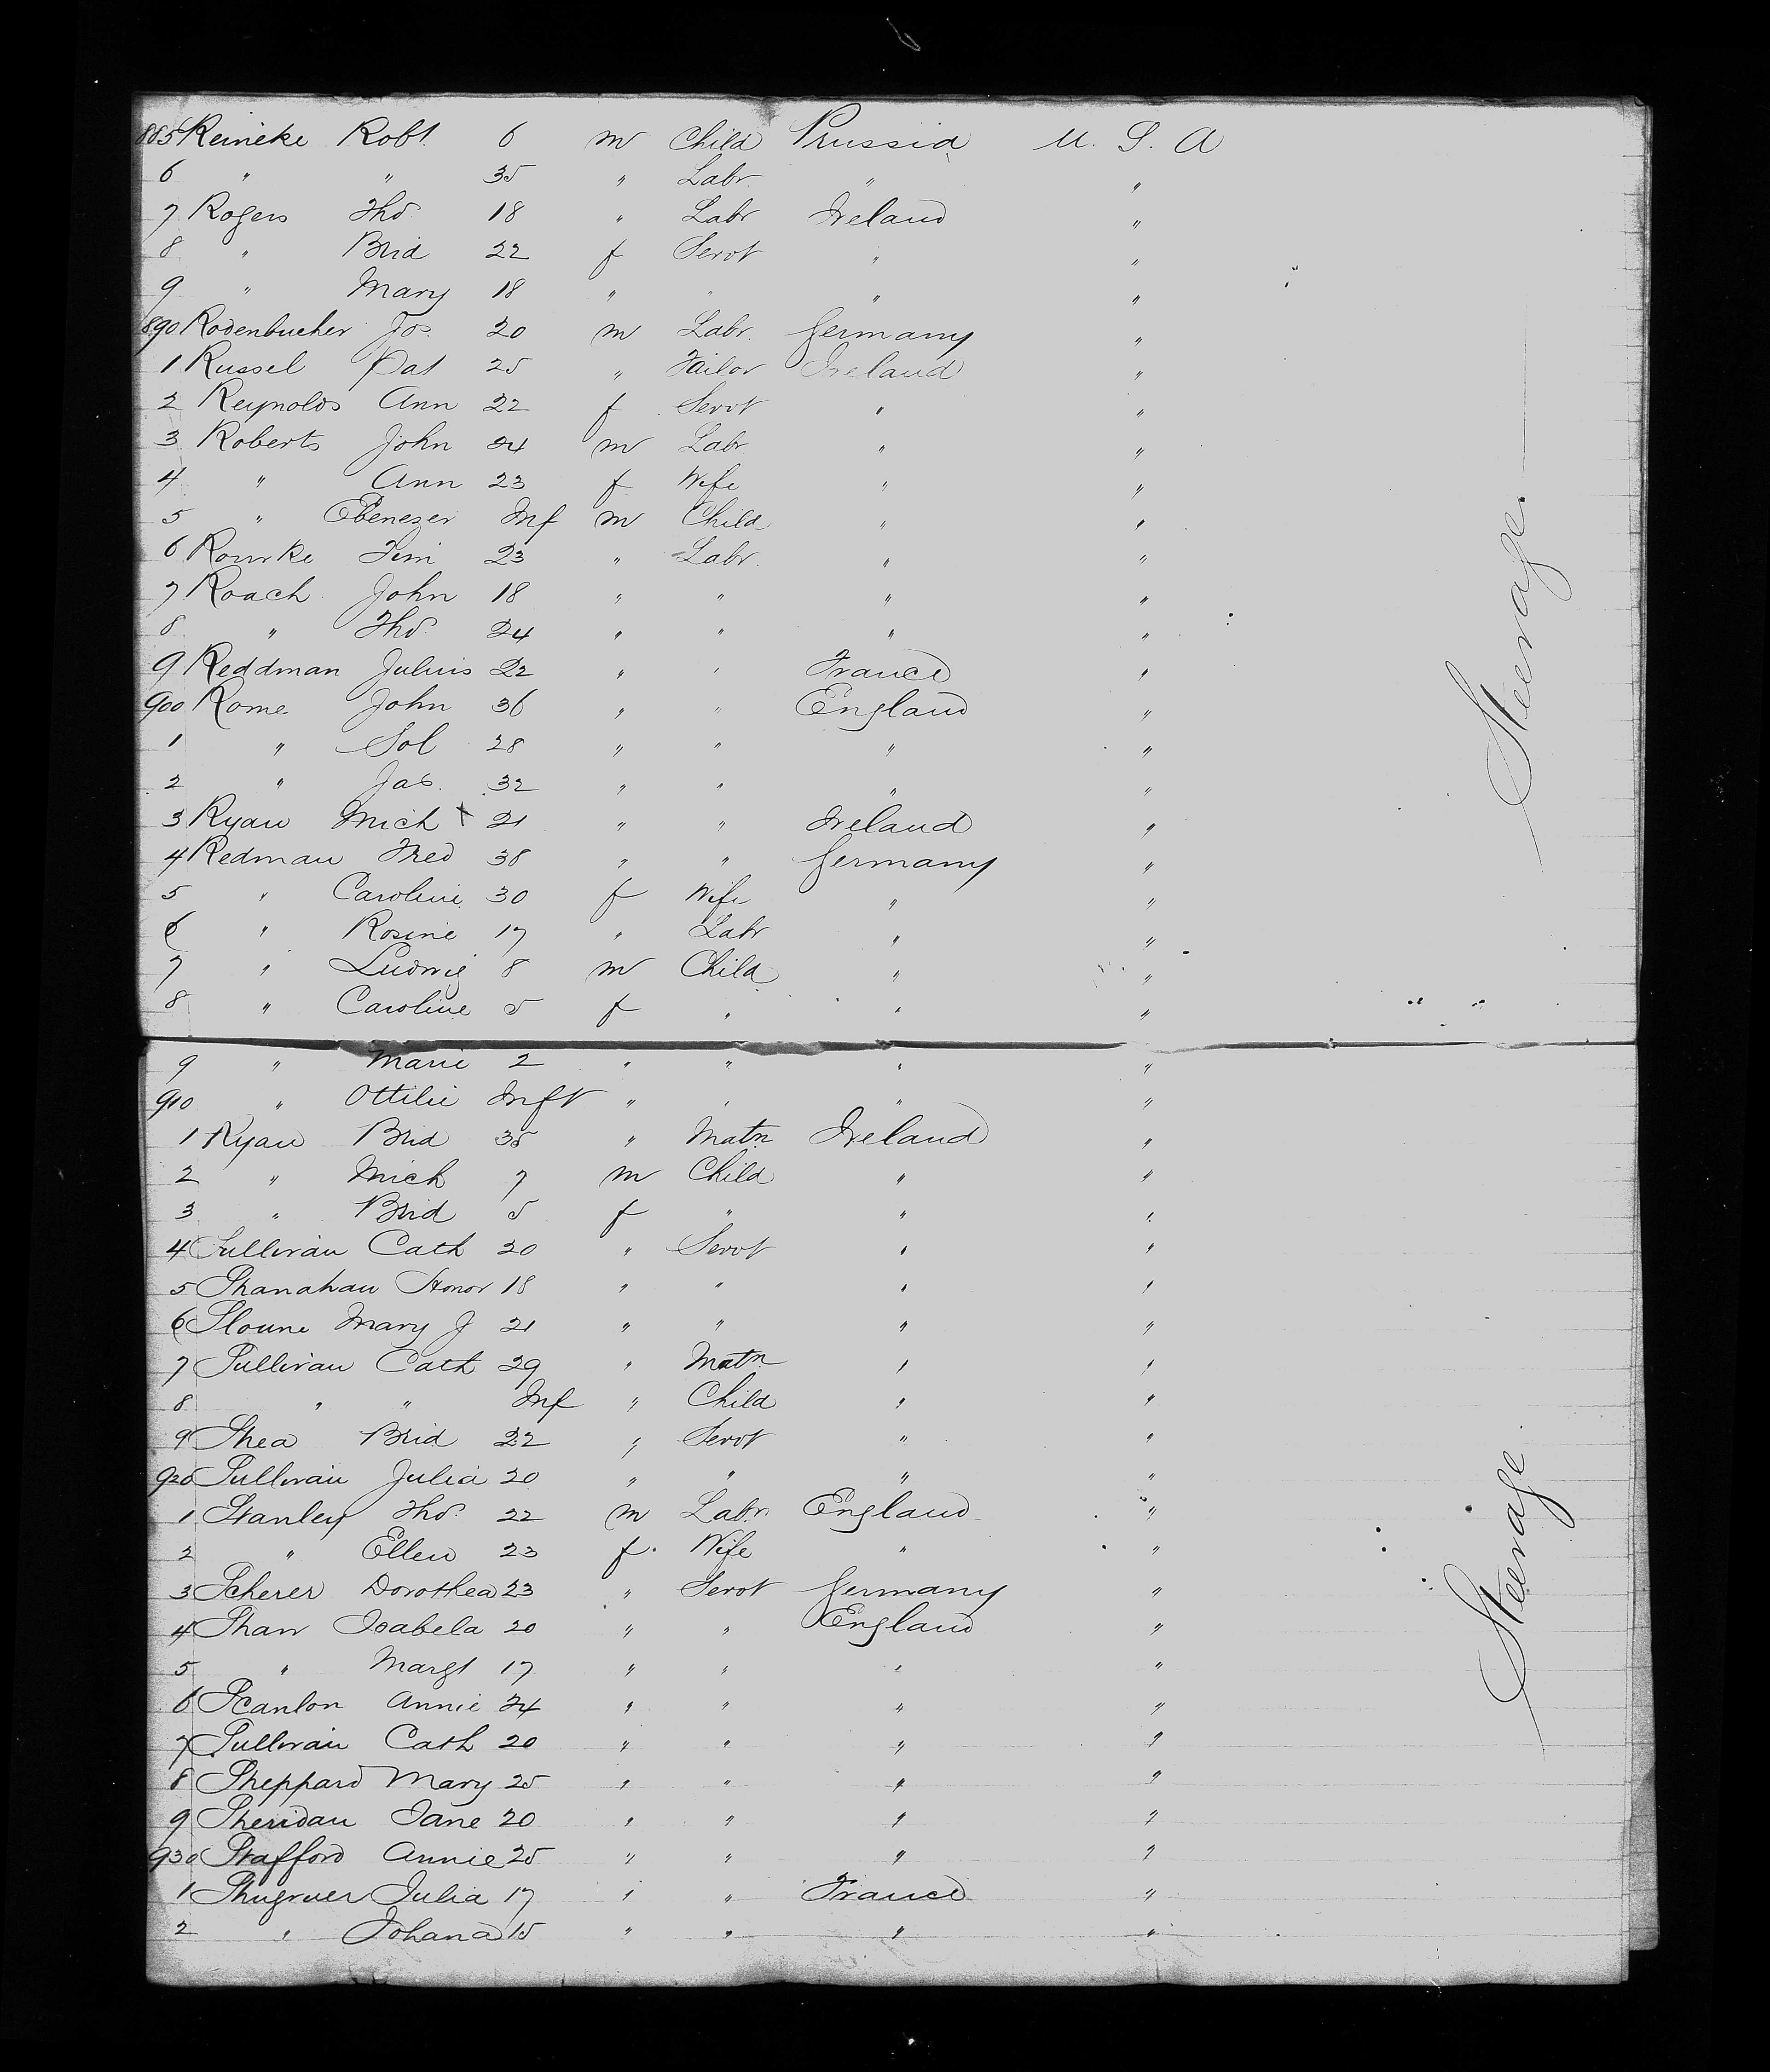 885 Reineke Robt. 6 m Child Prussia U. S. A
6 " " 35 " Labr. " "
7 Rogers Tho. 18 " Labr Ireland "
8 " Brid 22 f Servt " "
9 " Mary 18 " " " "
890 Rodenbucher Jos. 20 m Labr. Germany "
1 Russel Pat 25 " Tailor Ireland "
2 Reynolds Ann 22 f Servt " "
3 Roberts John 24 m Labr. " "
4 " Ann 23 f Wife " "
5 " Ebenezer Inf m Child " "
6 Rourke Tim 23 " Labr. " "
7 Roach John 18 " " " "
8 " Tho. 24 " " " "
9 Reddman Julius 22 " " France "
900 Rome John 36 " " England "
1 " Sol 28 " " " "
2 " Jas. 32 " " " "
3 Ryan Mich x 21 " " Ireland "
4 Redman Fred 38 " " Germany "
5 " Caroline 30 f Wife " "
6 " Rosine 17 " Labr " "
7 " Ludwig 8 m Child " "
8 " Caroline 5 f " " "
9 " Marie 2 " " " "
910 " Ottilie Inft " " " "
1 Ryan Brid 35 " Matn Ireland "
2 " Mich 7 m Child " "
3 " Brid 5 f " " "
4 Sullivan Cath 20 " Servt " "
5 Shanahan Honor 18 " " " "
6 Sloune Mary J 21 " " " "
7 Sullivan Cath 29 " Matn " "
8 " " Inf " Child " "
9 Shea Brid 22 " Servt " "
920 Sullivan Julia 20 " " " "
1 Stanley Tho. 22 m Labr. England "
2 " Ellen 23 f. Wife " "
3 Scherer Dorothea 23 " Servt Germany "
4 Shaw Isabela 20 " " England "
5 " Margt 17 " " " "
6 Scanlon Annie 24 " " " "
7 Sullivan Cath 20 " " " "
8 Sheppard Mary 25 " " " "
9 Sheridan Jane 20 " " " "
930 Stafford Annie 25 " " " "
1 Shugruer Julia 17 " " France "
2 " Johana 15 " " " "
Steerage
Steerage